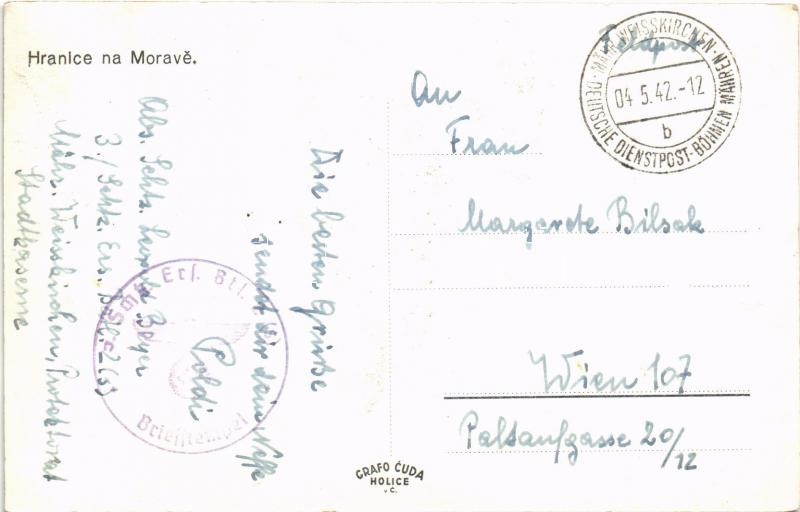 Hranice na Moravě.
Feldpost
MÄHR. WEISSKIRCHEN
04 5.42.-12
b
DEUTSCHE DIENSTPOST-BÖHMEN MÄHREN
An
Frau
Margarete Bilsak
Wien 107
Paltaufgasse 20/12
Abs. Schtz. Leopold Beyer
3/Schtz. Ers. Batl. 2(S)
Mähr. Weisskirchen, Protektorat
Stadtkaserne
Die besten Grüße
sendet Dir dein Neffe
Poldi
Schtz. Ers. Btl. 2
Briefstempel
GRAFO ČUDA
HOLICE
v Č.